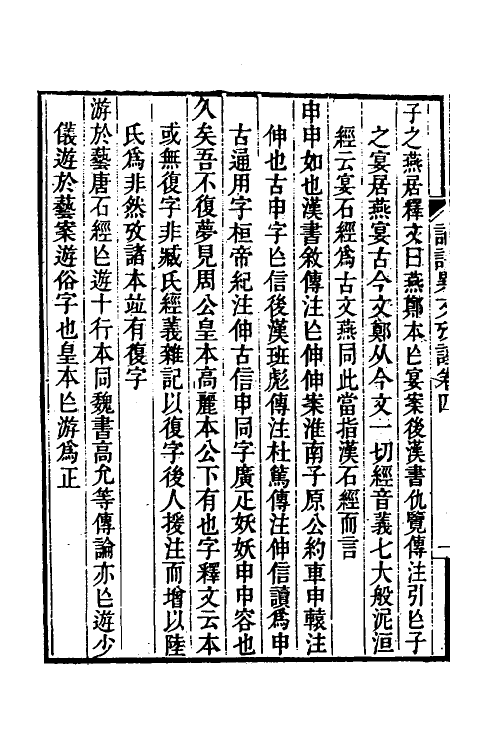 子之燕居釋文曰燕鄭本亾宴案後漢書仇覽傳注引亾子
之宴居燕宴古今文鄭从今文一切經音義七大般泥洹
經云宴石經爲古文燕同此當指漢石經而言
申申如也漢書敘傳注亾伸伸案淮南子原公約車申轅注
伸也古申字亾信後漢班彪傳注杜篤傳注伸信讀爲申
古通用字桓帝紀注伸古信申同字廣疋妖妖申申容也
久矣吾不復夢見周公皇本高麗本公下有也字釋文云本
或無復字非臧氏經義雜記以復字後人援注而增以陸
氏爲非然攷諸本竝有復字
游於藝唐石經亾遊十行本同魏書高允等傳論亦亾遊少
儀遊於藝案遊俗字也皇本亾游爲正
論語異文攷證卷四
一